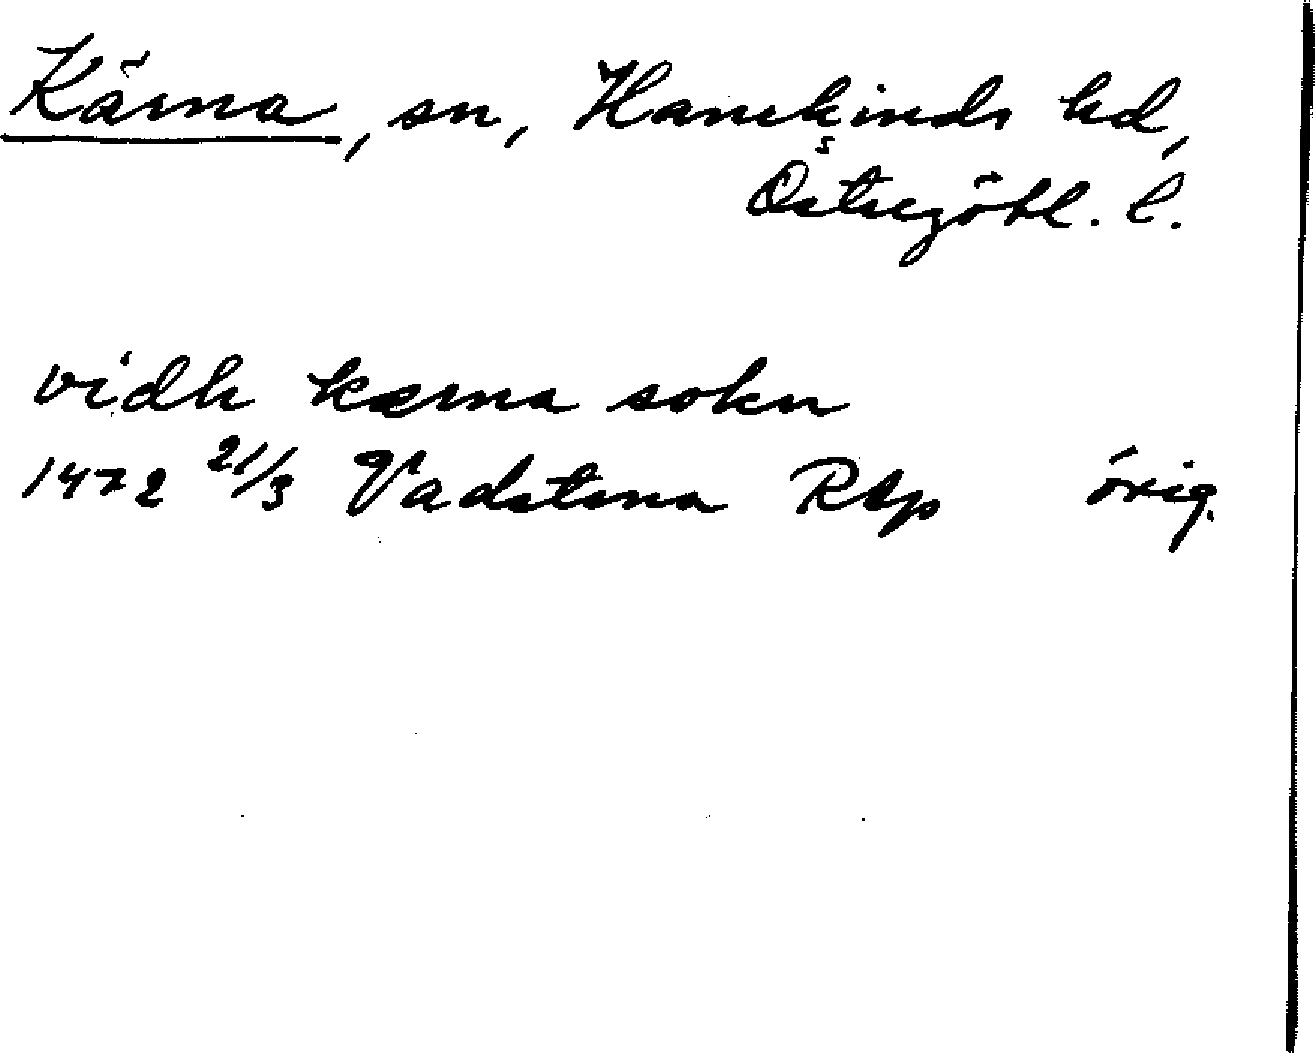 Kärna, sn, Hanekinds hd,
Östregötl. l.
vidh kærna sokn
1472 21/3 Vadstena RAp orig.